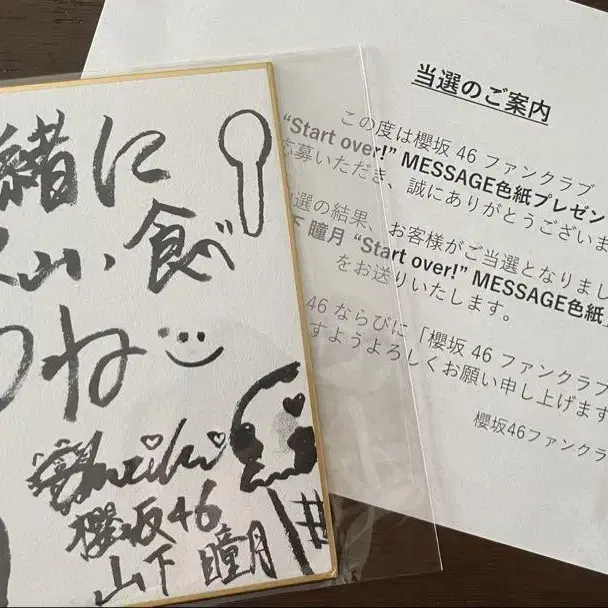 緒に
山、食べ
ね
櫻坂46
山下 瞳月
当選のご案内
この度は櫻坂 46 ファンクラブ
“Start over!” MESSAGE色紙プレゼン
応募いただき、誠にありがとうございま
選の結果、お客様がご当選となりまし
下 瞳月 “Start over!” MESSAGE色紙
をお送りいたします。
46 ならびに「櫻坂 46 ファンクラブ
すようよろしくお願い申し上げます
櫻坂46ファンクラ